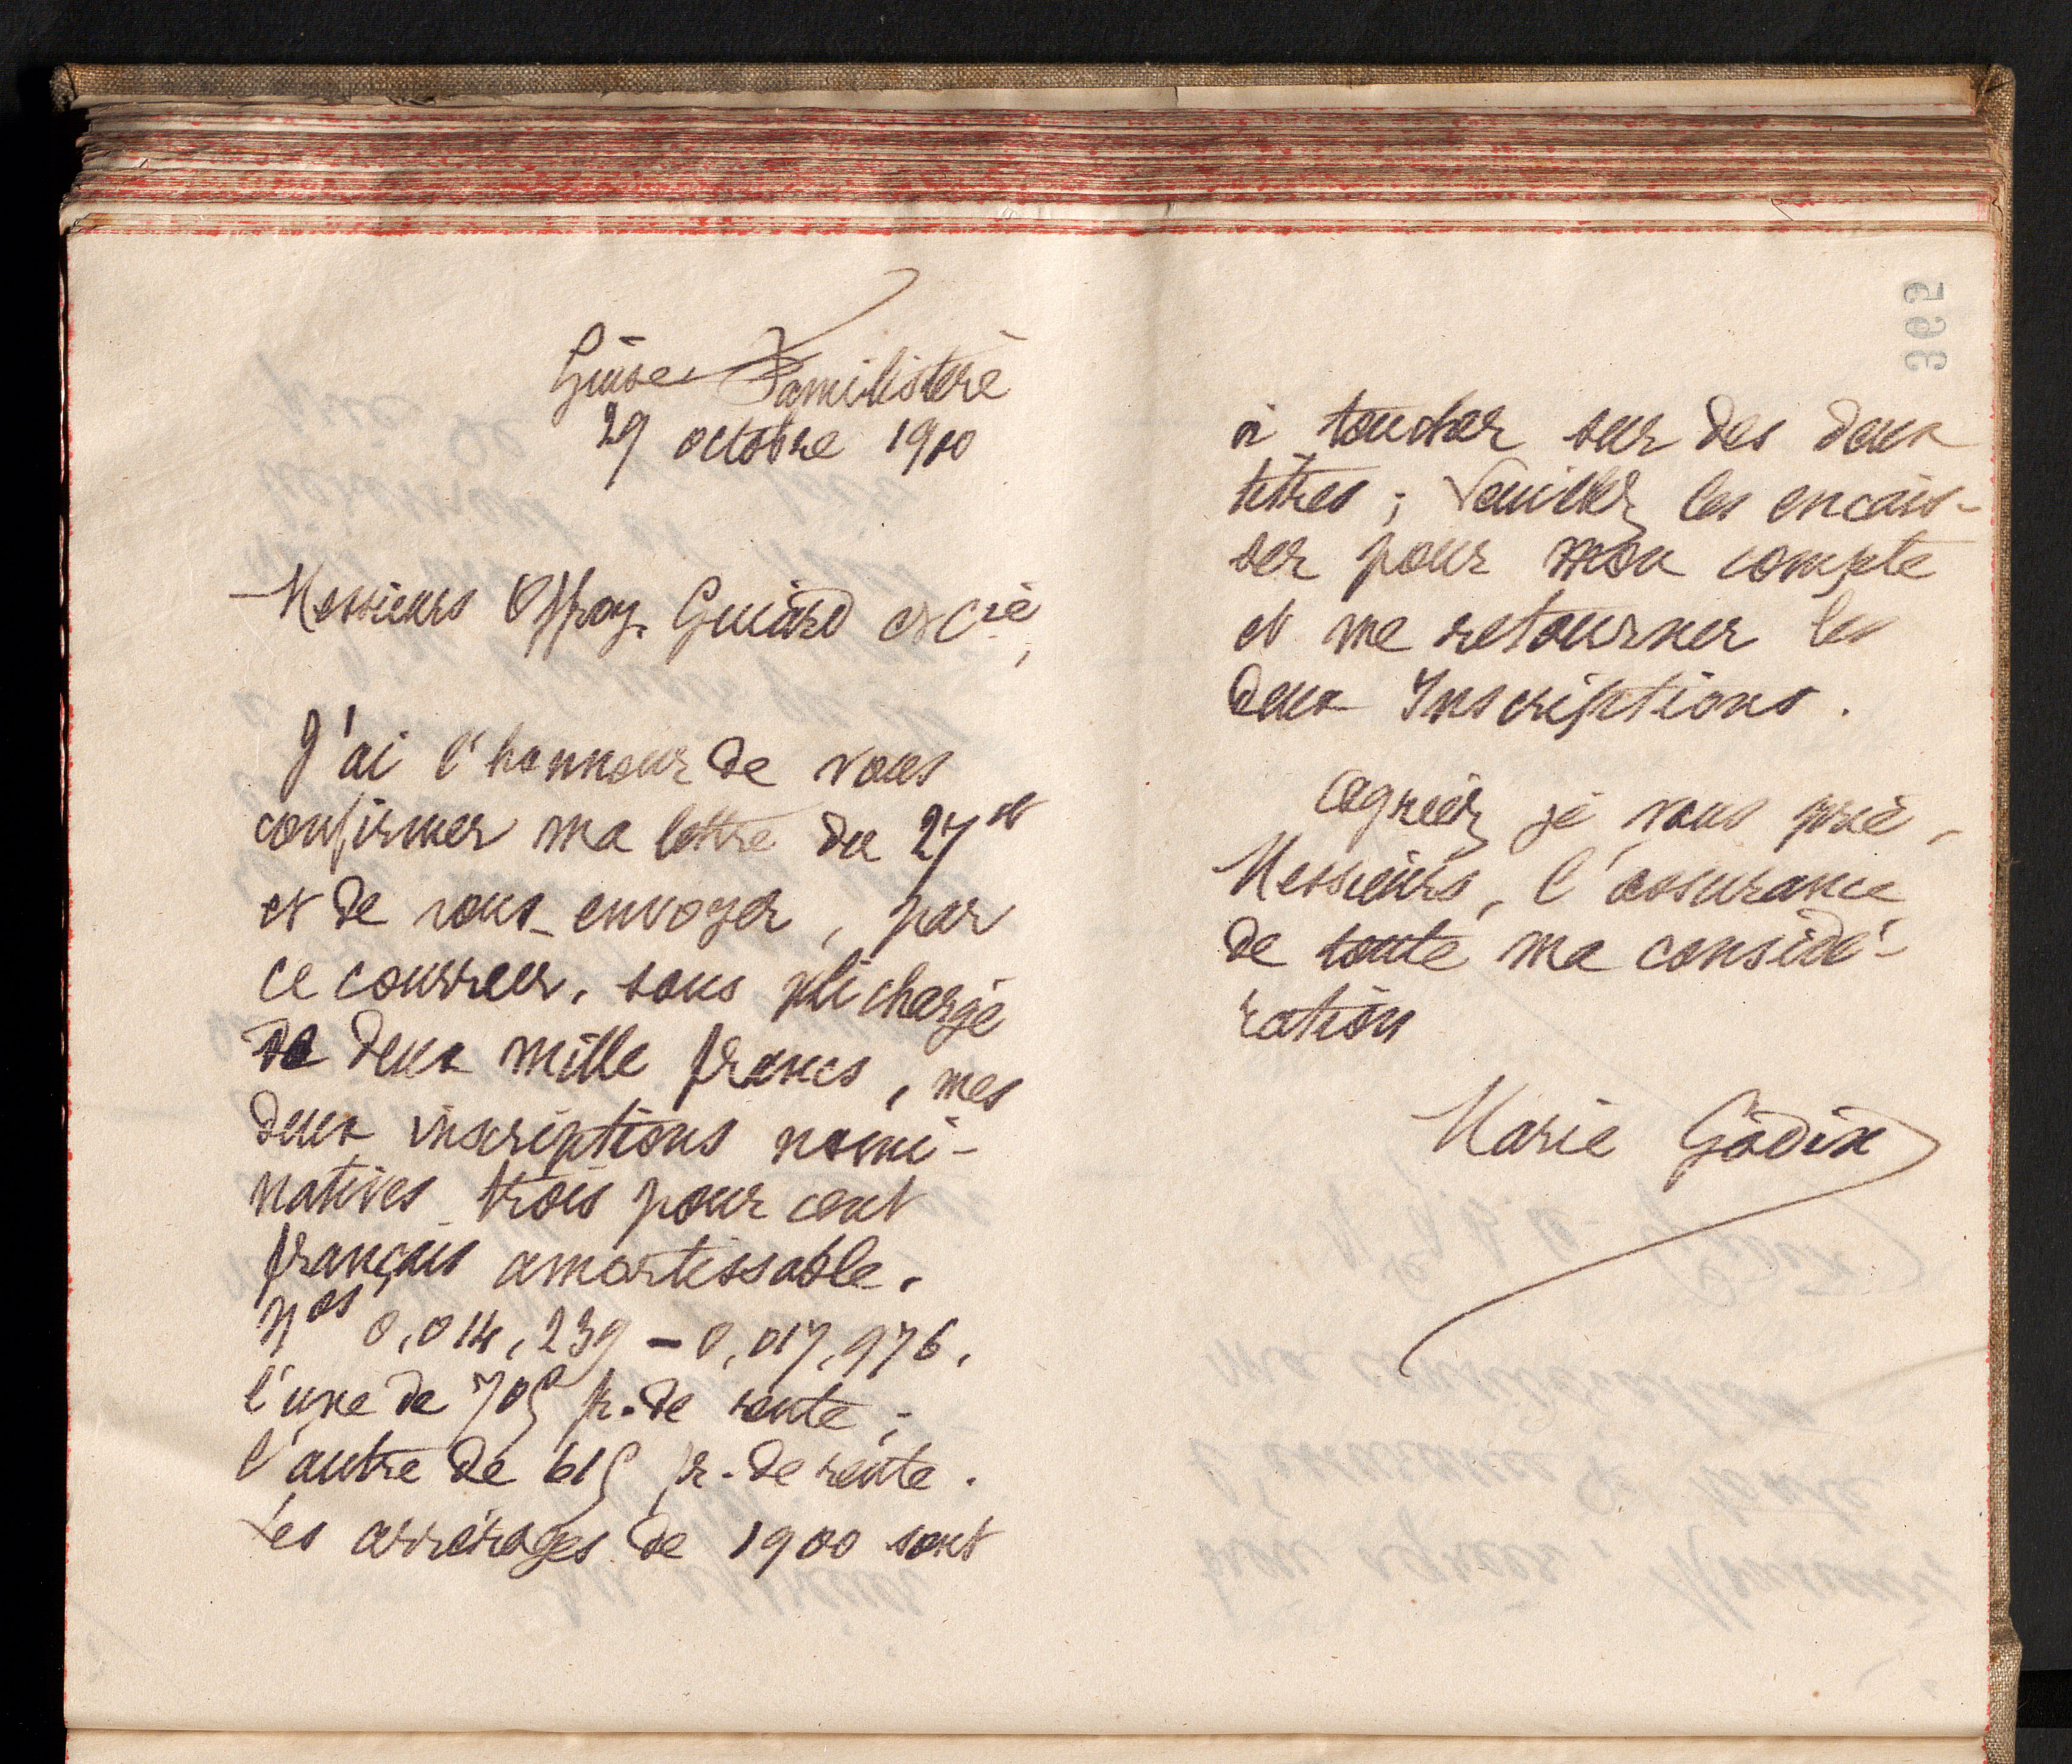 Guise Familistère
29 octobre 1900
Messieurs Offroy, Guiard et Cie,
J'ai l'honneur de vous
confirmer ma lettre du 27 ct
et de vous envoyer, par
ce courrier, sous pli chargé
de deux mille francs, mes
deux inscriptions nomi-
natives trois pour cent
français amortissable.
Nos 0,014,239 - 0,017,976,
l'une de 705 fr. de rente ;
l'autre de 615 fr. de rente.
Les arrérages de 1900 sont
365
à toucher sur des deux
titres ; Veuillez les encais-
ser pour mon compte
et me retourner les
deux Inscriptions.
Agréez, je vous prie,
Messieurs, l'assurance
de toute ma considé-
ration
Marie Godin